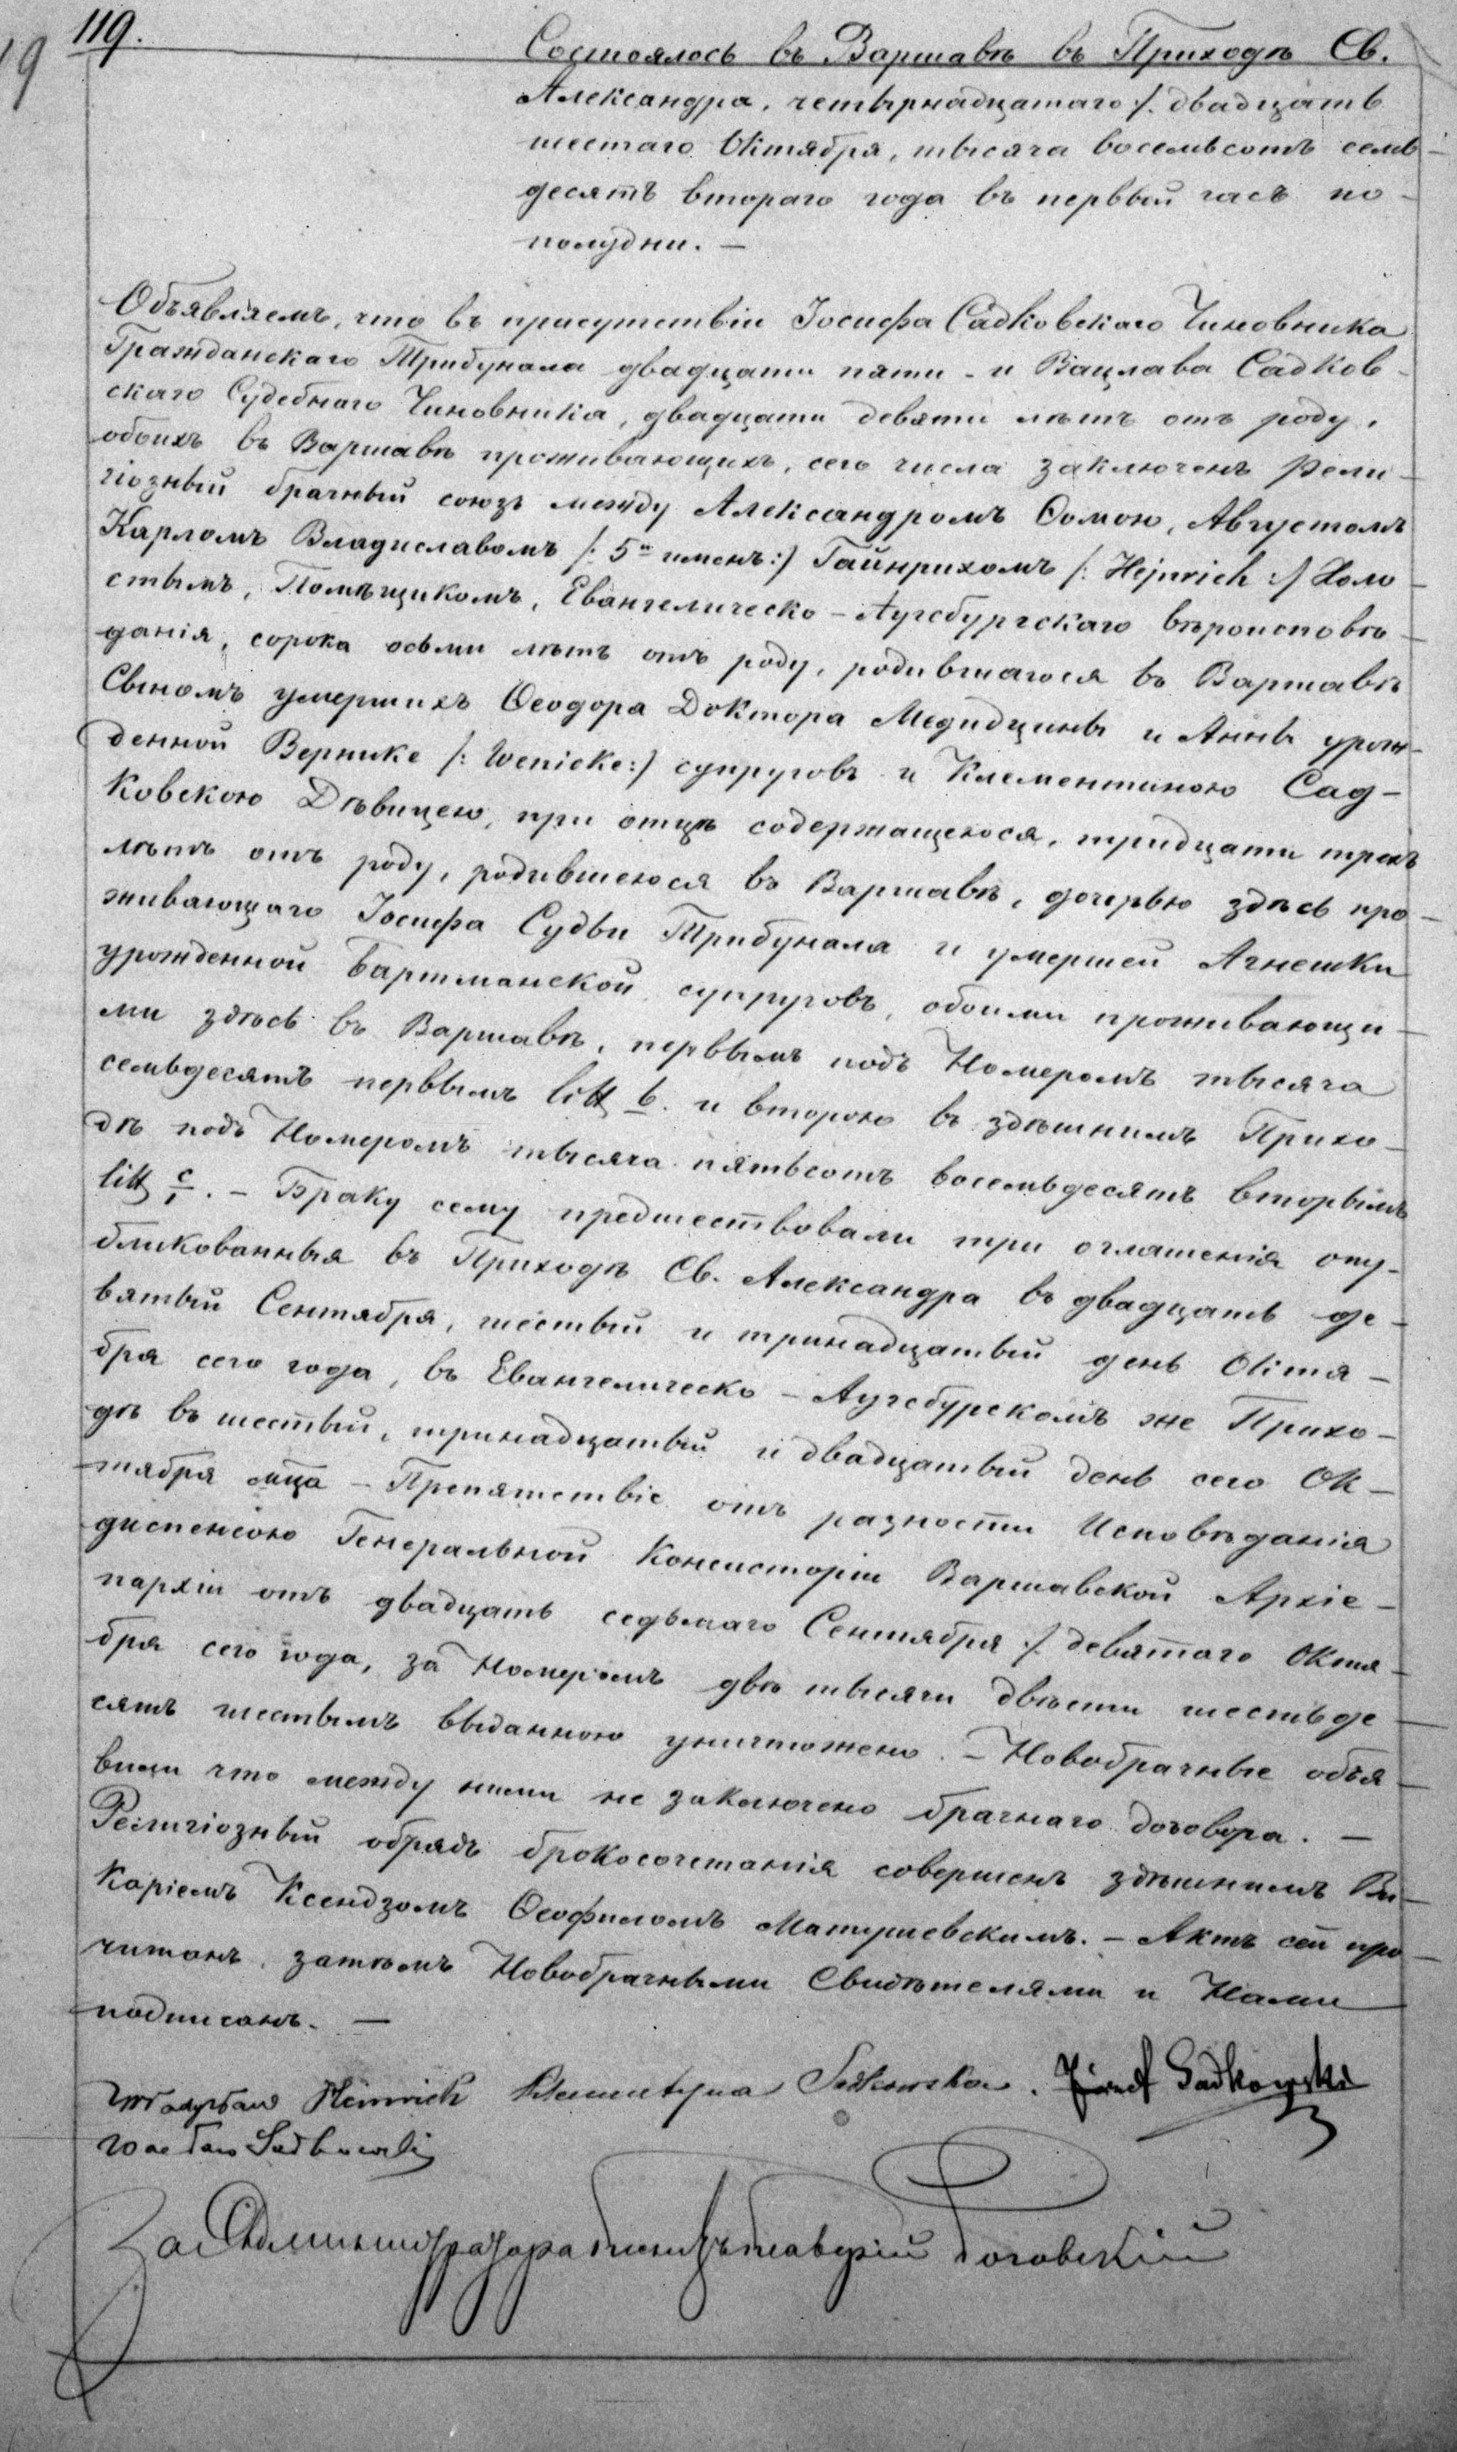 119.
19
Состоялось въ Варшавѣ въ Приходѣ Св.
Александра, четырнадцатаго /. двадцать
шестаго Октября, тысяча восемьсотъ семь-
десятъ втораго года въ первый часъ по-
полудни. —
Объявляемъ, что въ присутствіи Іосифа Садковскаго Чиновника
Гражданскаго Трибунала двадцати пяти - и Вацлава Садков-
скаго Судебнаго Чиновника, двадцати девяти лѣтъ отъ роду,
обоихъ въ Варшавѣ проживающихъ, сего числа заключенъ Рели-
гіозный брачный союзъ между Александромъ Ѳомою, Августомъ
Карломъ Владиславомъ /: 5и именъ :/ Гайнрихомъ /: Hejnrich :/ Холо-
стымъ, Помѣщикомъ, Евангелическо - Аугсбургскаго вѣроисповѣ-
данія, сорока осьми лѣтъ отъ роду, родившагося въ Варшавѣ
Сыномъ умершихъ Ѳеодора Доктора Медидцины и Анны урож-
денной Вернике /: Wenicke :/ супруговъ - и Клементиною Сад-
ковскою Дѣвицею, при отцѣ содержащеюся, тридцати трехъ
лѣтъ отъ роду, родившеюся въ Варшавѣ, дочерью здѣсь про-
живающаго Іосифа Судьи Трибунала и умершей Агнешки
урожденной Бартманской супруговъ, обоими проживающи-
ми здѣсь въ Варшавѣ, первымъ подъ Номеромъ тысяча
семьдесятъ первымъ litt b. и второю въ здѣшнимъ Прихо-
дѣ подъ Номеромъ тысяча пятьсотъ восемьдесятъ вторымъ
litt c/1. - Браку сему предшествовали три оглашенія опу-
бликованныя въ Приходѣ Св. Александра въ двадцать де-
вятый Сентября, шестый и тринадцатый день Октя-
бря сего года, въ Евангелическо - Аугсбурскомъ же Прихо-
дѣ въ шестый, тринадцатый и двадцатый день сего Ок-
тября мца - Препятствіе отъ разности Исповѣданія
диспенсою Генеральной Консисторіи Варшавской Архіе-
пархіи отъ двадцать седьмаго Сентября /. девятаго Октя-
бря сего года, за Номеромъ двѣ тысячи двѣсти шестьде-
сятъ шестымъ выданною уничтожено. - Новобрачные объя-
вили что между ними не заключено брачнаго договора. —
Религіозный обрядъ брокосочетанія совершенъ здѣшнимъ Ви-
каріемъ Ксендзомъ Ѳеофиломъ Матушевскимъ. - Актъ сей про-
читанъ, затѣмъ Новобрачными Свидѣтелями и Нами
подписанъ. —
Heinrich Klementyna Sadkowska. Józef Sadkowski
Wacław Sadkowski
За Администратора